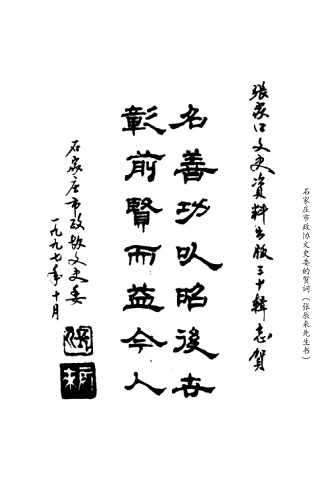 張家口文史資料出版三十輯志賀
名善功以昭後世
彰前賢而益今人
石家庄市政協文史委
一九九七年十月
石家庄市政协文史委的贺词（张辰来先生书）